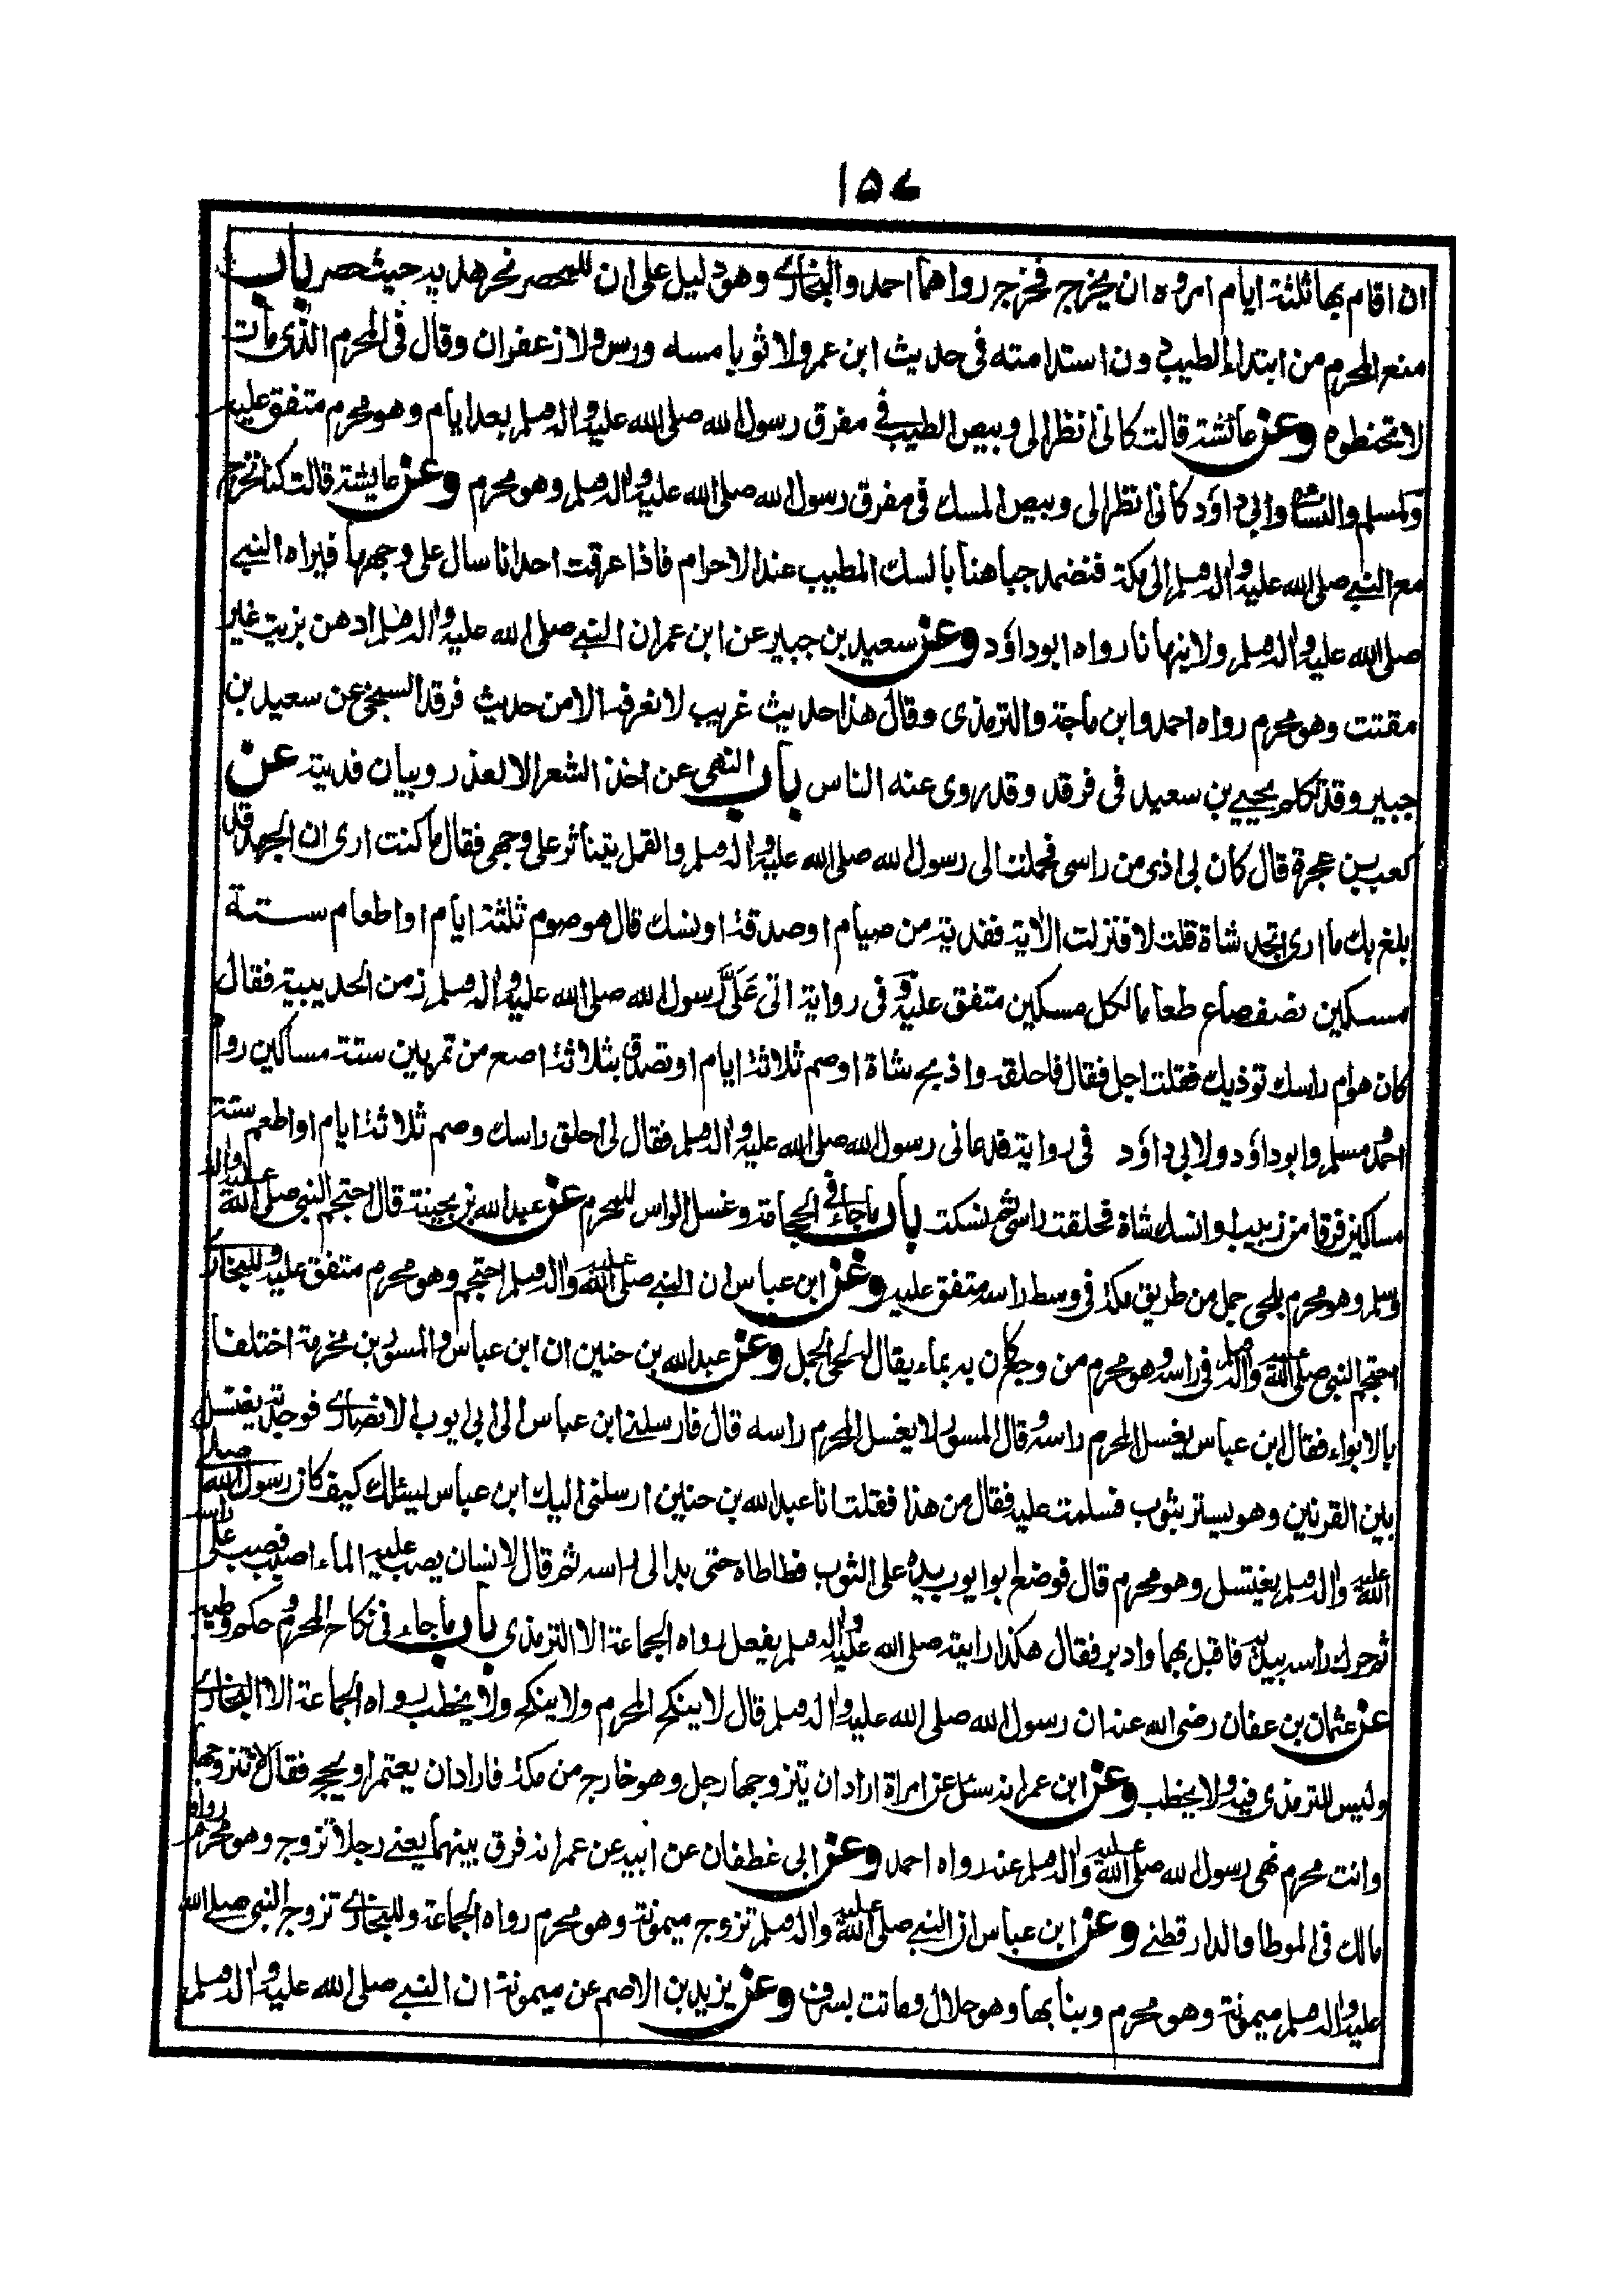 ١٥٧
ان اقام بها ثلثة ايام امروه ان يخرج فخرج رواهما احمد والبخارى وهو دليل على ان للمحصر نحر هديه حيث حصر باب
منع المحرم من ابتداء الطيب دون استدامته فى حديث ابن عمر ولا ثوبا مسه ورس ولا زعفران وقال فى المحرم الذى مات
لا تحنطوه وعن عائشة قالت كانى انظر الى وبيص الطيب فى مفرق رسول الله صلى الله عليه واله وسلم بعد ايام وهو محرم متفق عليه
ولمسلم والنسائى وابى داؤد كانى انظر الى وبيص المسك فى مفرق رسول الله صلى الله عليه واله وسلم وهو محرم وعن عايشة قالت كنا نخرج
مع النبى صلى الله عليه واله وسلم الى مكة فنضمد جباهنا بالسك المطيب عند الاحرام فاذا عرقت احدانا سال على وجهها فيراه النبى
صلى الله عليه واله وسلم ولا ينهانا رواه ابوداؤد وعن سعيد بن جبير عن ابن عمر ان النبى صلى الله عليه واله وسلم ادهن بزيت غير
مقتت وهو محرم رواه احمد وابن ماجة والترمذى وقال هذا حديث غريب لا نعرفه الا من حديث فرقد السبخى عن سعيد بن
جبير وقد تكلم يحيى بن سعيد فى فرقد وقد روى عنه الناس باب النهى عن اخذ الشعر الا لعذر وبيان فديته عن
كعب بن عجرة قال كان بى اذى من راسى فحملت الى رسول الله صلى الله عليه واله وسلم والقمل يتناثر على وجهى فقال ما كنت ارى ان الجهد قد
بلغ بك ما ارى اتجد شاة قلت لا فنزلت الاية ففدية من صيام او صدقة او نسك قال هو صوم ثلثة ايام او اطعام ستة
مسكين نصف صاع طعاما لكل مسكين متفق عليه وفى رواية اتى عَلَىَّ رسول الله صلى الله عليه واله وسلم زمن الحديبية فقال
كان هوام راسك توذيك فقلت اجل فقال فاحلقه واذبح شاة او صم ثلاثة ايام او تصدق بثلاثة اصع من تمر بين ستة مساكين رواه
احمد ومسلم وابو داؤد ولابى داؤد فى رواية فدعانى رسول الله صلى الله عليه واله وسلم فقال لى احلق راسك وصم ثلاثة ايام او اطعم ستة
مساكين فرقا من زبيب او انسك شاة فحلقت راسى ثم نسكت باب ما جاء فى الحجامة وغسل الراس للمحرم عن عبد الله بن بحينة قال احتجم النبى صلى الله عليه واله
وسلم وهو محرم بلحى جمل من طريق مكة فى وسط راسه متفق عليه وعن ابن عباس ان النبى صلى الله عليه واله وسلم احتجم وهو محرم متفق عليه وللبخارى
احتجم النبى صلى الله عليه واله وسلم فى راسه وهو محرم من وجع كان به بماء يقال له لحى الجمل وعن عبد الله بن حنين ان ابن عباس والمسور بن مخرمة اختلفا
بالابواء فقال ابن عباس يغسل المحرم راسه وقال المسور لا يغسل المحرم راسه قال فارسلنى ابن عباس الى ابى ايوب الانصارى فوجدته يغتسل
بين القرنين وهو يستر بثوب فسلمت عليه فقال من هذا فقلت انا عبد الله بن حنين ارسلنى اليك ابن عباس ليسئلك كيف كان رسول الله صلى
الله عليه واله وسلم يغتسل وهو محرم قال فوضع ابو ايوب يده على الثوب فطاطاه حتى بدا لى راسه ثم قال لانسان يصب عليه الماء اصبب فصب على راسه
ثم حرك راسه بيديه فاقبل بهما وادبر فقال هكذا رايته صلى الله عليه واله وسلم يفعل رواه الجماعة الا الترمذى باب ما جاء فى نكاح المحرم وحكم وطيه
عن عثمان بن عفان رضى الله عنه ان رسول الله صلى الله عليه واله وسلم قال لا ينكح المحرم ولا ينكح ولا يخطب رواه الجماعة الا البخارى
وليس للترمذى فيه ولا يخطب وعن ابن عمر انه سئل عن امراة اراد ان يتزوجها رجل وهو خارج من مكة فاراد ان يعتمر او يحج فقال لا تتزوجها
وانت محرم نهى رسول الله صلى الله عليه واله وسلم عنه رواه احمد وعن ابى غطفان عن ابيه عن عمر انه فرق بينهما يعنى رجلا تزوج وهو محرم رواه
مالك فى الموطا والدارقطنى وعن ابن عباس ان النبى صلى الله عليه واله وسلم تزوج ميمونة وهو محرم رواه الجماعة وللبخارى تزوج النبى صلى الله
عليه واله وسلم ميمونة وهو محرم وبنا بها وهو حلال وماتت بسرف وعن يزيد بن الاصم عن ميمونة ان النبى صلى الله عليه واله وسلم